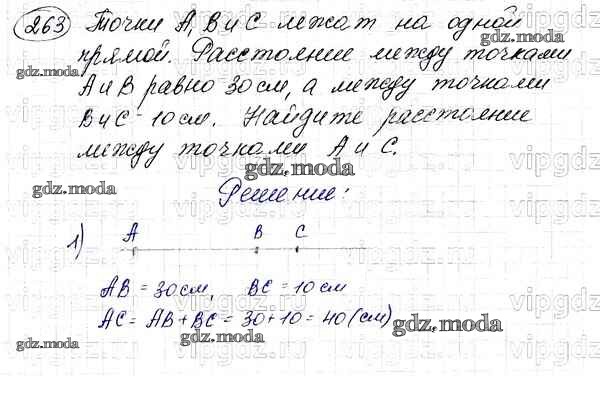 263 Точки А, В и С лежат на одной
прямой. Расстояние между точками
А и В равно 30 см, а между точками
В и С - 10 см. Найдите расстояние
между точками А и С.
Решение:
1) A B C
AB = 30 см, BC = 10 см
AC = AB + BC = 30 + 10 = 40 (см)
gdz.moda
gdz.moda
gdz.moda
gdz.moda
gdz.moda
gdz.moda
gdz.moda
gdz.moda
vipgdz.ru